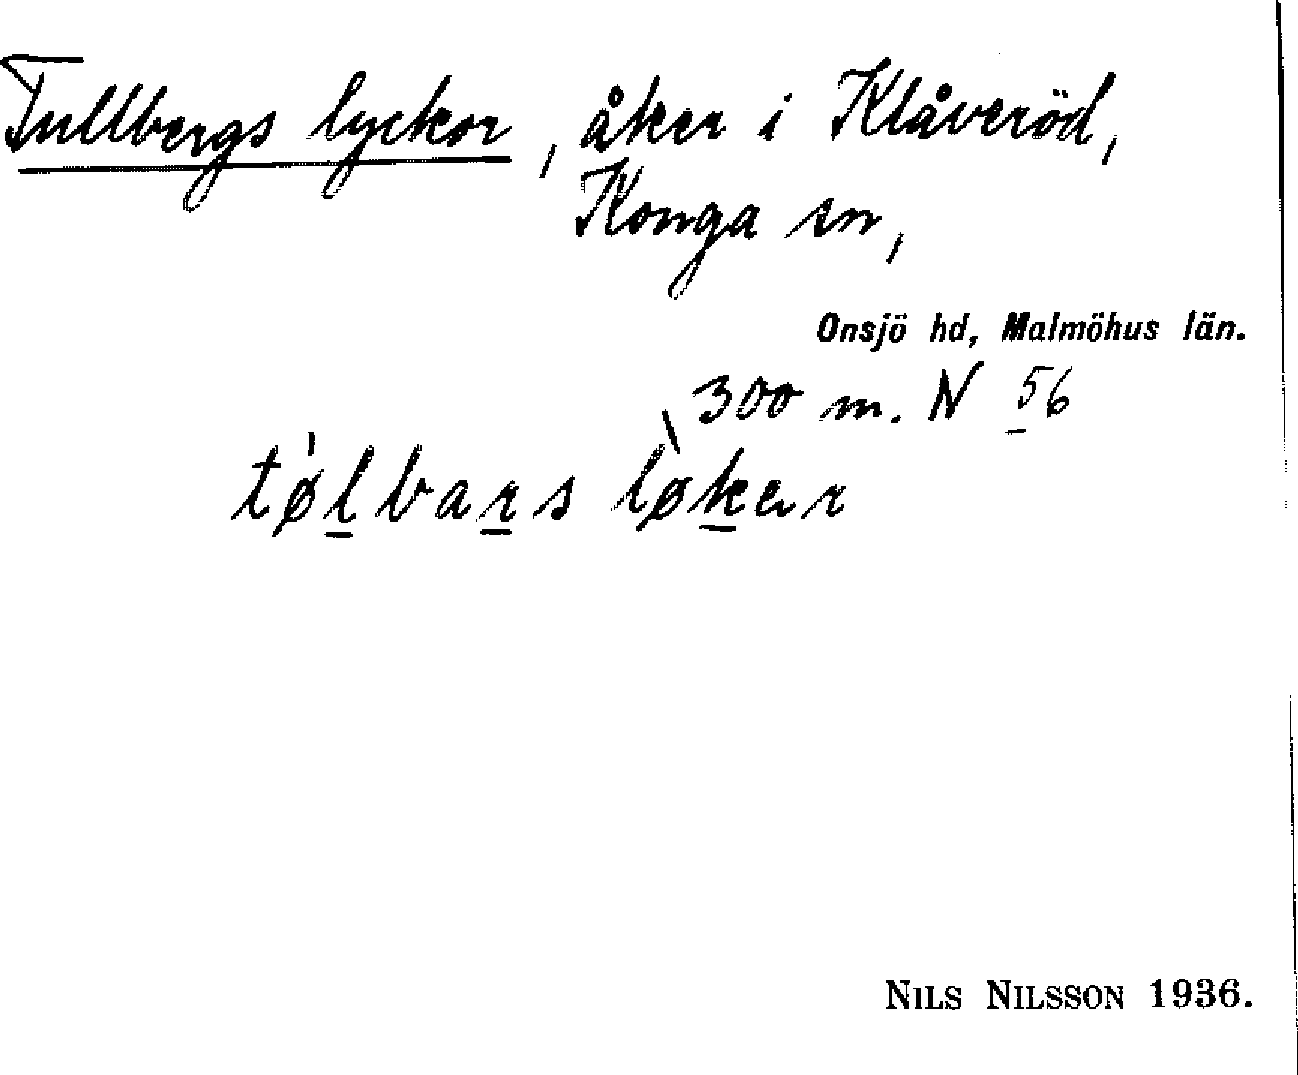 Tullbergs lyckor, åker i Klåveröd,
Konga sn,
Onsjö hd, Malmöhus län.
300 m. N 56
tø̍lbars lø̀ker
NILS NILSSON 1936.